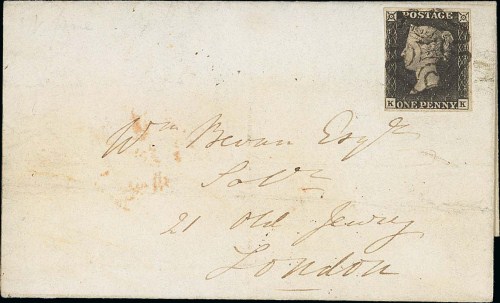 POSTAGE
K K
ONE PENNY
Wm Bevan Esqr
Solr
21 Old Jewry
London